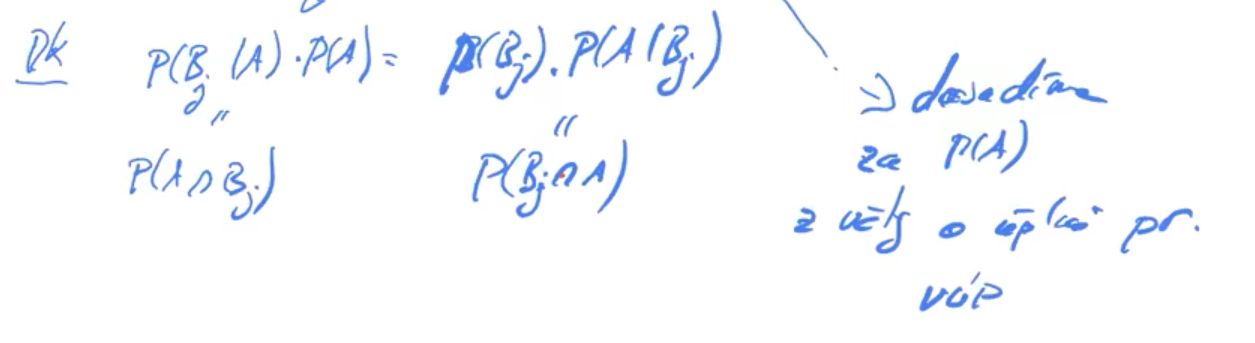 Dk P(B_j | A) · P(A) = P(B_j) . P(A | B_j)
" "
P(A ∩ B_j) P(B_j ∩ A)
→ dosadíme
za P(A)
z věty o úplné pr.
VÚP